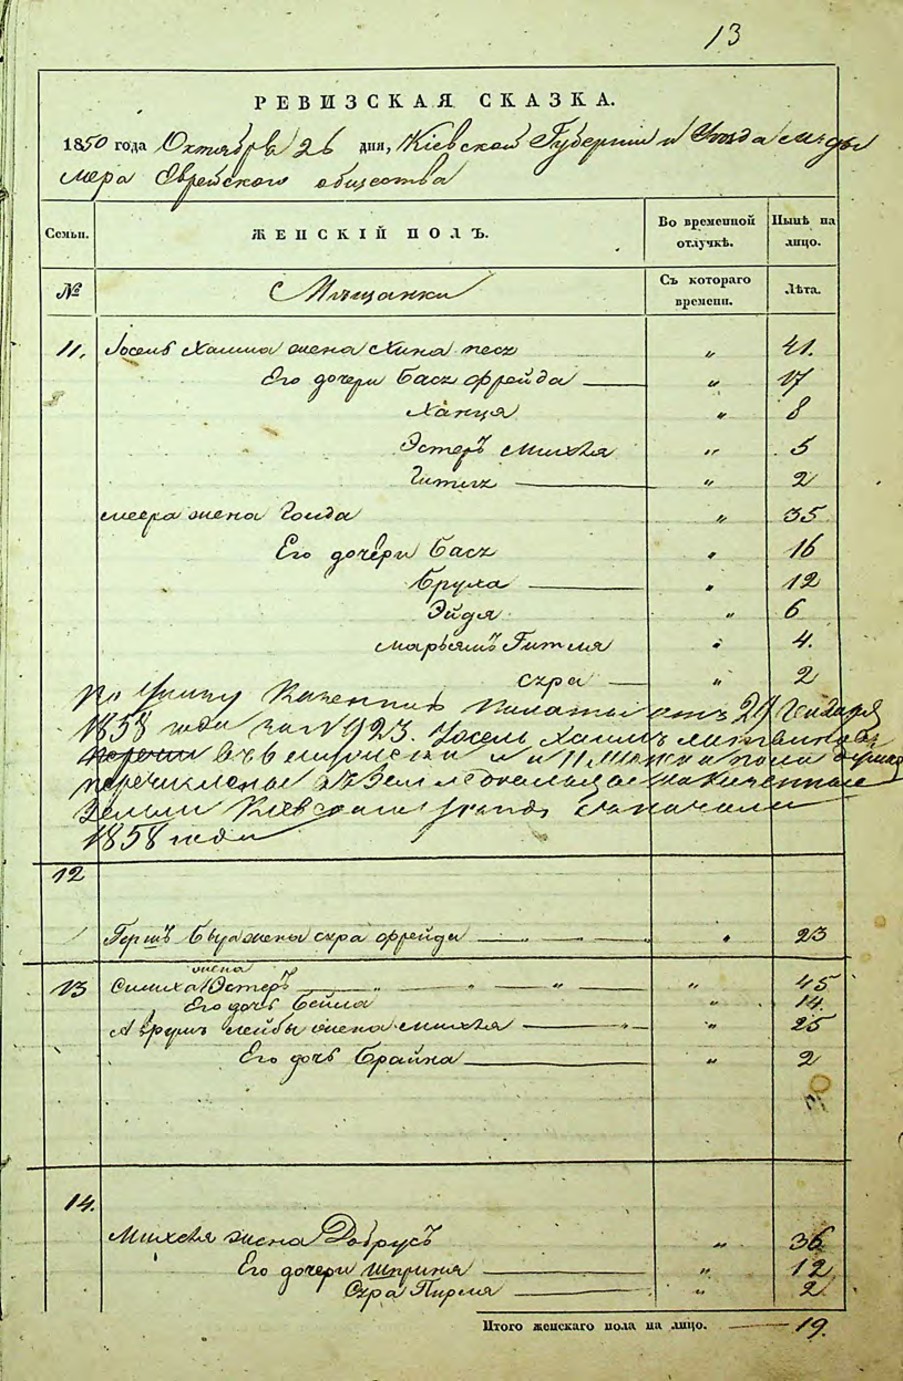 13
РЕВИЗСКАЯ СКАЗКА.
1850 года Октября 26 дня, Кіевской Губерніи и Уезда
мера Еврейского общества
Семьи.
ЖЕНСКІЙ ПОЛЪ.
Во временной отлучкѣ.
Нынѣ на лицо.
№
Мещанки
Съ котораго времени.
Лѣта.
11. Іосель Хаима жена Хина песя " 41.
Его дочери Бася фрейда " 17
Ханця " 8
Эстеръ Михля " 5
Гитля " 2
меера жена Голда " 35
Его дочери Бася " 16
Бруха " 12
Эйдя " 6
марьямъ Гитля " 4.
сура " 2
По Указу Казенной Палаты отъ 29 Генваря
1858 года за № 923. Іосель Хаимъ
перечислены въ Земледельцы на казенные
Земли Кіевскаго уезда
1858 года
12
Гершъ жена сура фрейда " 23
жена
13 Симиха Эстеръ " 45
Его дочь Бейла " 14
Аврумъ лейбы жена михля " 25
Его дочь Брайна " 2
14.
Михеля жена Добрусь " 36
Его дочери Шпринця " 12
Сура Перля " 2
Итого женскаго пола на лицо. 19.